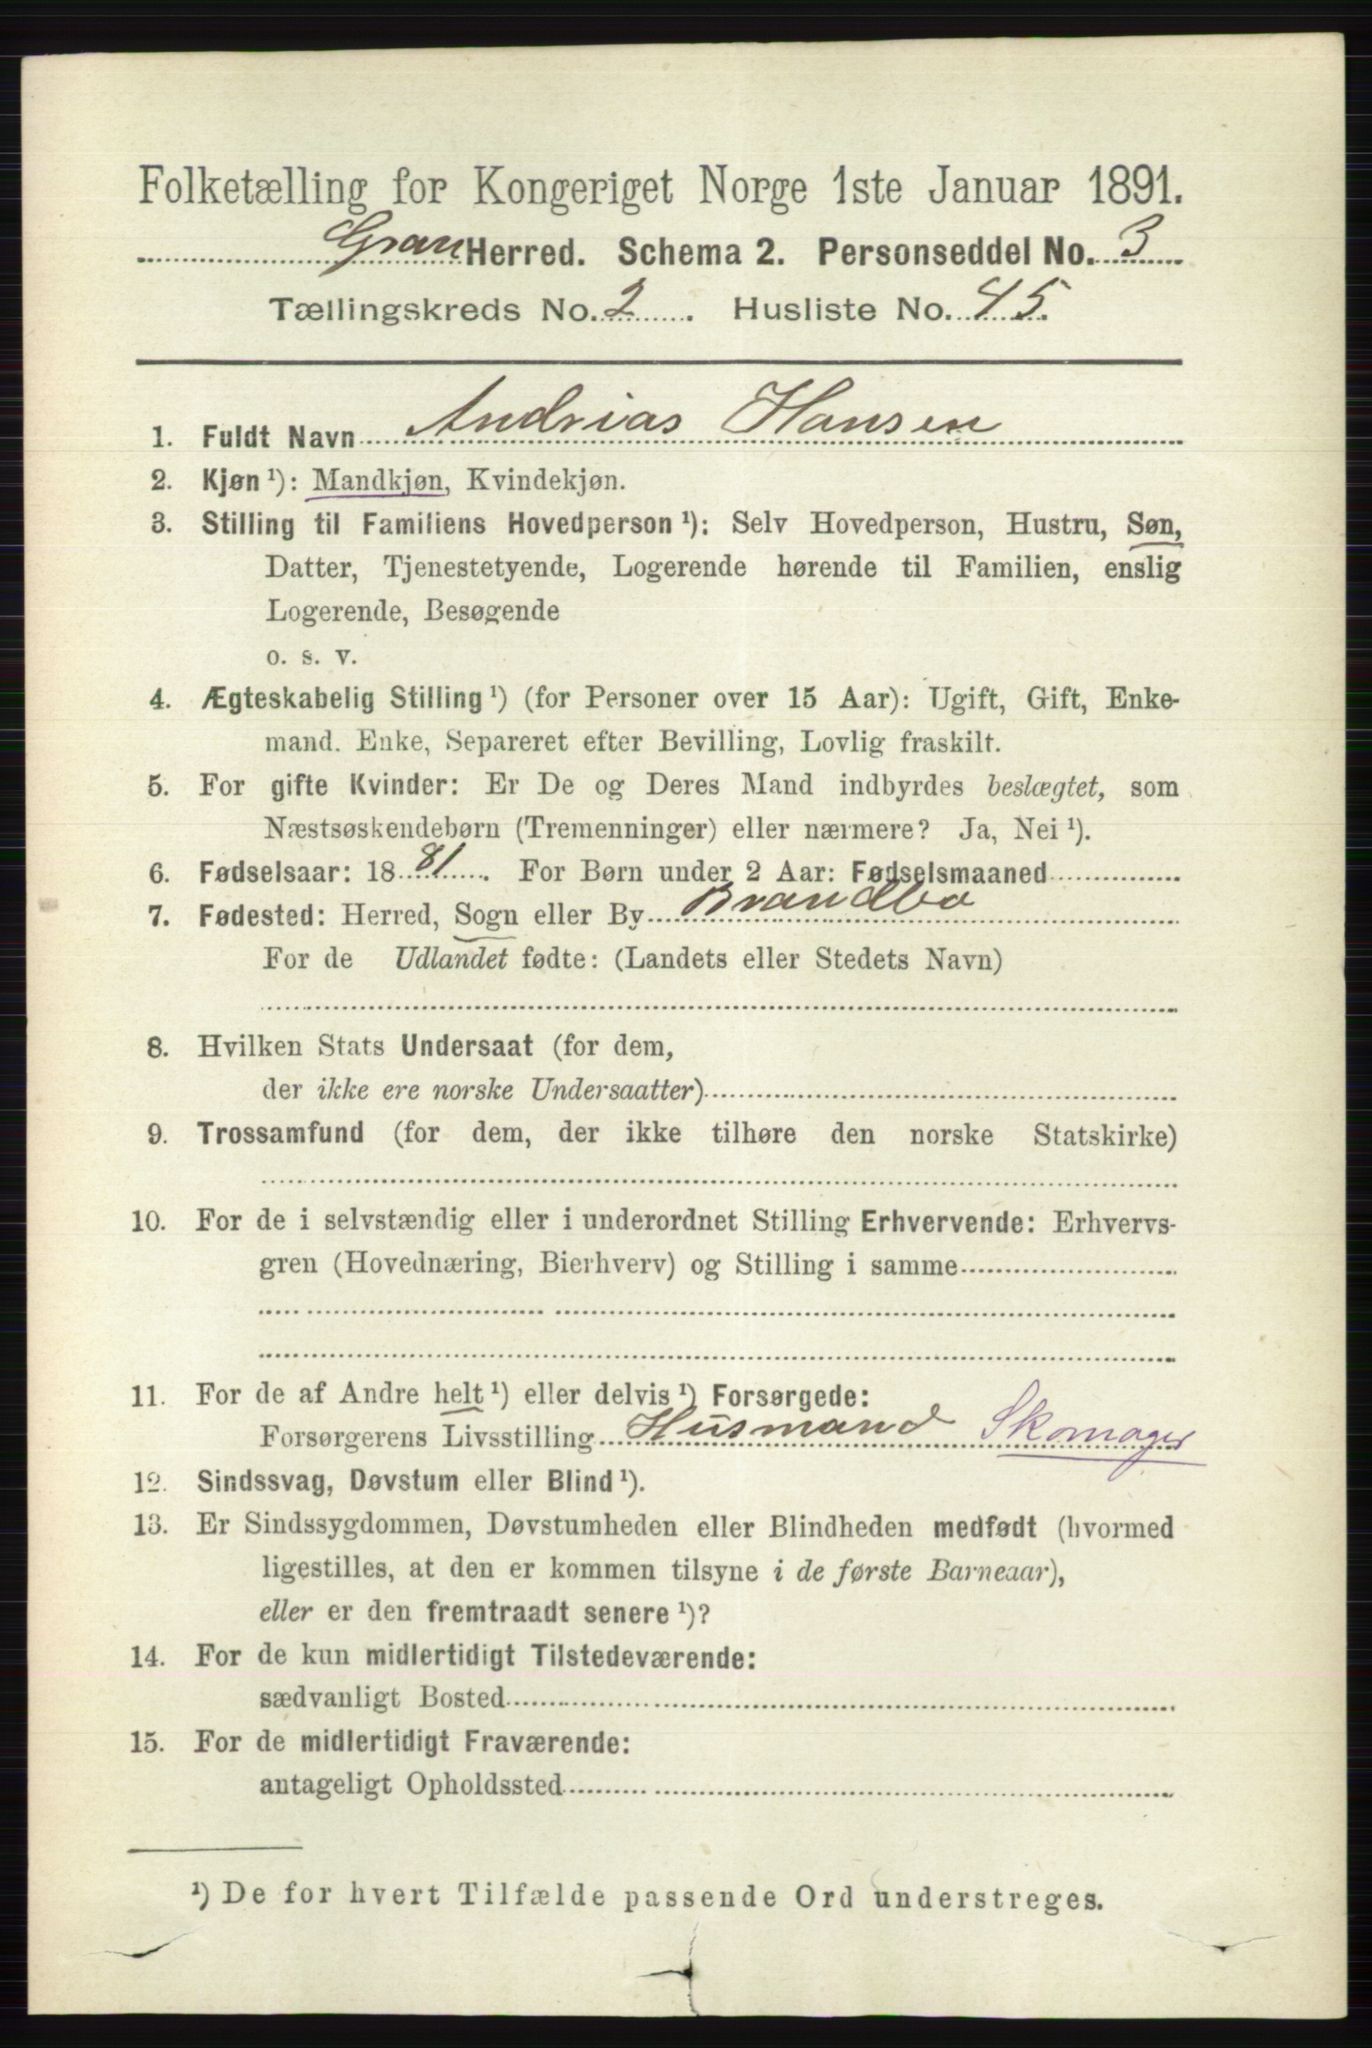 Folketælling for Kongeriget Norge 1ste Januar 1891.
Gran Herred. Schema 2. Personseddel No. 3
Tællingskreds No. 2. Husliste No. 45.
1. Fuldt Navn Andrias Hansen
2. Kjøn ¹): Mandkjøn, Kvindekjøn.
3. Stilling til Familiens Hovedperson ¹): Selv Hovedperson, Hustru, Søn,
Datter, Tjenestetyende, Logerende hørende til Familien, enslig
Logerende, Besøgende
o. s. v.
4. Ægteskabelig Stilling ¹) (for Personer over 15 Aar): Ugift, Gift, Enke-
mand. Enke, Separeret efter Bevilling, Lovlig fraskilt.
5. For gifte Kvinder: Er De og Deres Mand indbyrdes beslægtet, som
Næstsøskendebørn (Tremenninger) eller nærmere? Ja, Nei ¹).
6. Fødselsaar: 1881. For Børn under 2 Aar: Fødselsmaaned
7. Fødested: Herred, Sogn eller By Brandbo
For de Udlandet fødte: (Landets eller Stedets Navn)
8. Hvilken Stats Undersaat (for dem,
der ikke ere norske Undersaatter)
9. Trossamfund (for dem, der ikke tilhøre den norske Statskirke)
10. For de i selvstændig eller i underordnet Stilling Erhvervende: Erhvervs-
gren (Hovednæring, Bierhverv) og Stilling i samme
11. For de af Andre helt ¹) eller delvis ¹) Forsørgede:
Forsørgerens Livsstilling Husmand Skomager
12. Sindssvag, Døvstum eller Blind ¹).
13. Er Sindssygdommen, Døvstumheden eller Blindheden medfødt (hvormed
ligestilles, at den er kommen tilsyne i de første Barneaar),
eller er den fremtraadt senere ¹)?
14. For de kun midlertidigt Tilstedeværende:
sædvanligt Bosted
15. For de midlertidigt Fraværende:
antageligt Opholdssted
¹) De for hvert Tilfælde passende Ord understreges.